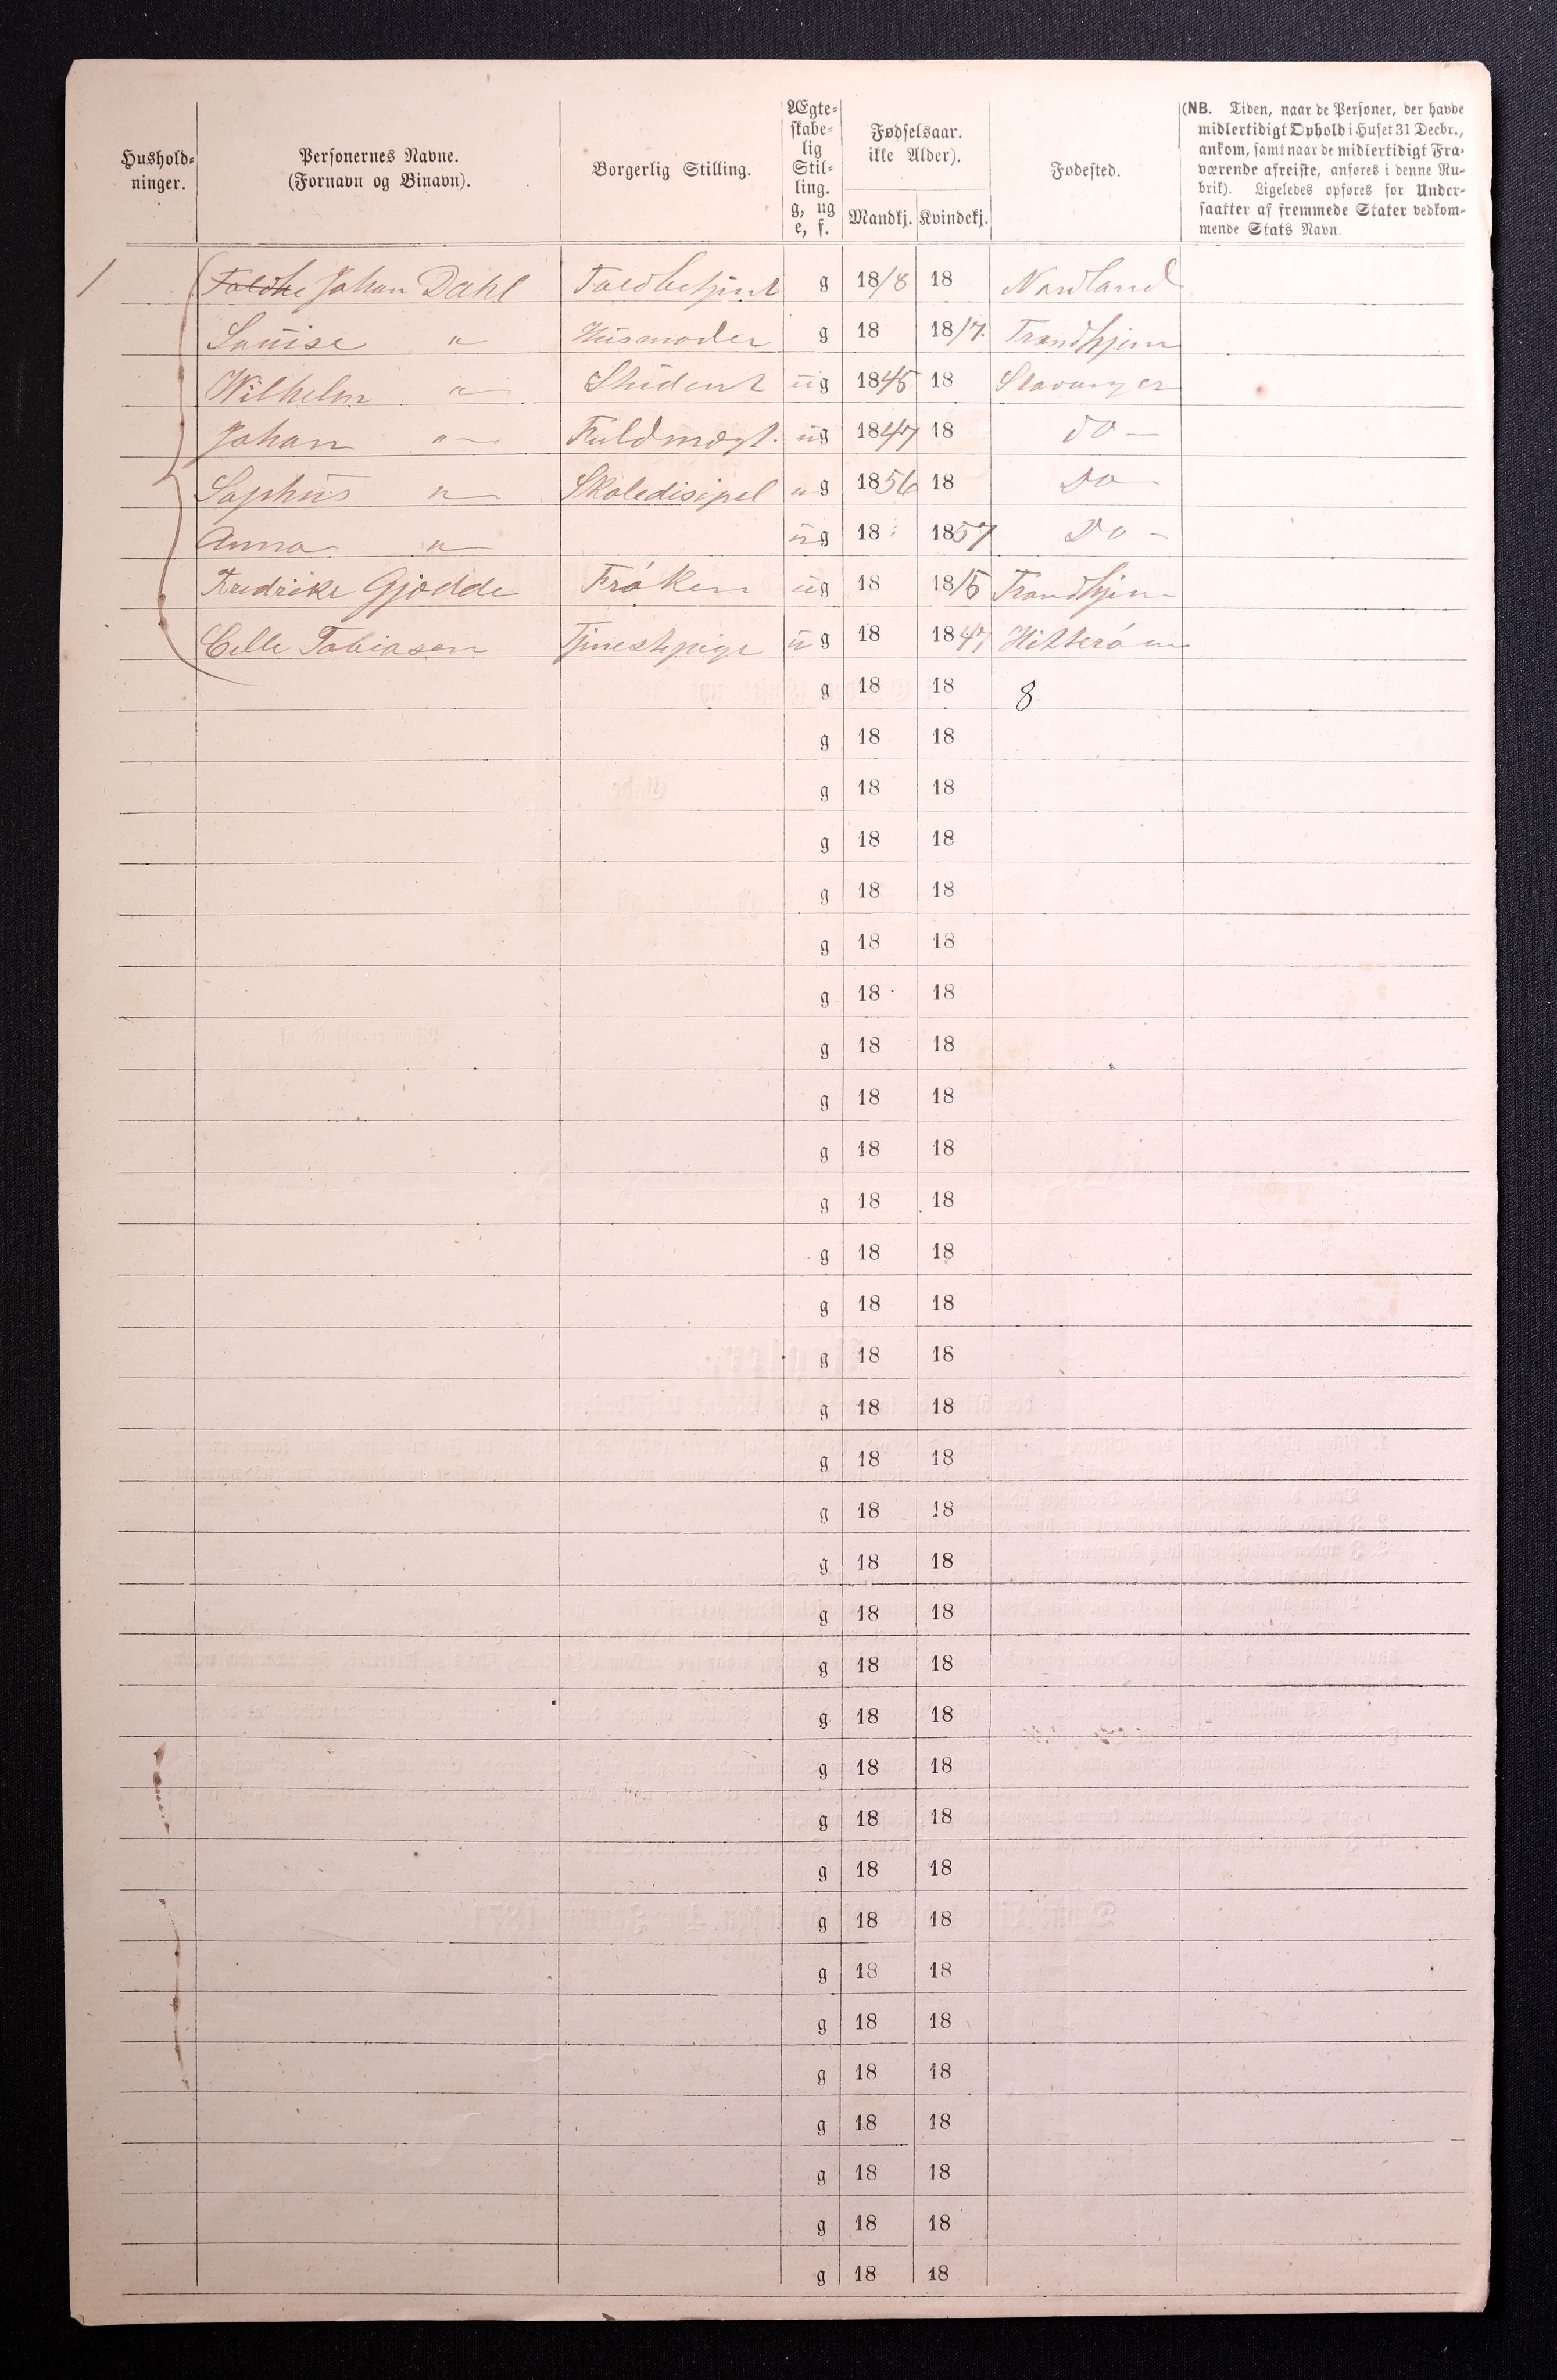 Hushold-
ninger.
Personernes Navne.
(Fornavn og Binavn).
Borgerlig Stilling.
Ægte-
skabe-
lig
Stil-
ling.
g, ug
e, f.
Fødselsaar.
ikke Alder).
Mandkj. Kvindekj.
Fødested.
(NB. Tiden, naar de Personer, der havde
midlertidigt Ophold i Huset 31 Decbr.,
ankom, samt naar de midlertidigt Fra-
værende afreiste, anføres i denne Ru-
brik). Ligeledes opføres for Under-
saatter af fremmede Stater vedkom-
mende Stats Navn.
1 Johan Dahl Toldbetjent g 18/8 18 Nordland
Louise " Husmoder g 18 18/7. Trondhjem
Wilhelm " Student ug 1845 18 Stavanger
Johan " Fuldmægt. ug 1847 18 do
Sophus " Skoledisipel ug 1856 18 Do
Anna " ug 18 1857 Do
Fredrike Gjødde Frøken ug 18 18/5 Trondhjem
Tobiasen Tjinestepige ug 18 1847 Hitterøen
g 18 18 8
g 18 18
g 18 18
g 18 18
g 18 18
g 18 18
g 18 18
g 18 18
g 18 18
g 18 18
g 18 18
g 18 18
g 18 18
g 18 18
g 18 18
g 18 18
g 18 18
g 18 18
g 18 18
g 18 18
g 18 18
g 18 18
g 18 18
g 18 18
g 18 18
g 18 18
g 18 18
g 18 18
g 18 18
g 18 18
g 18 18
g 18 18